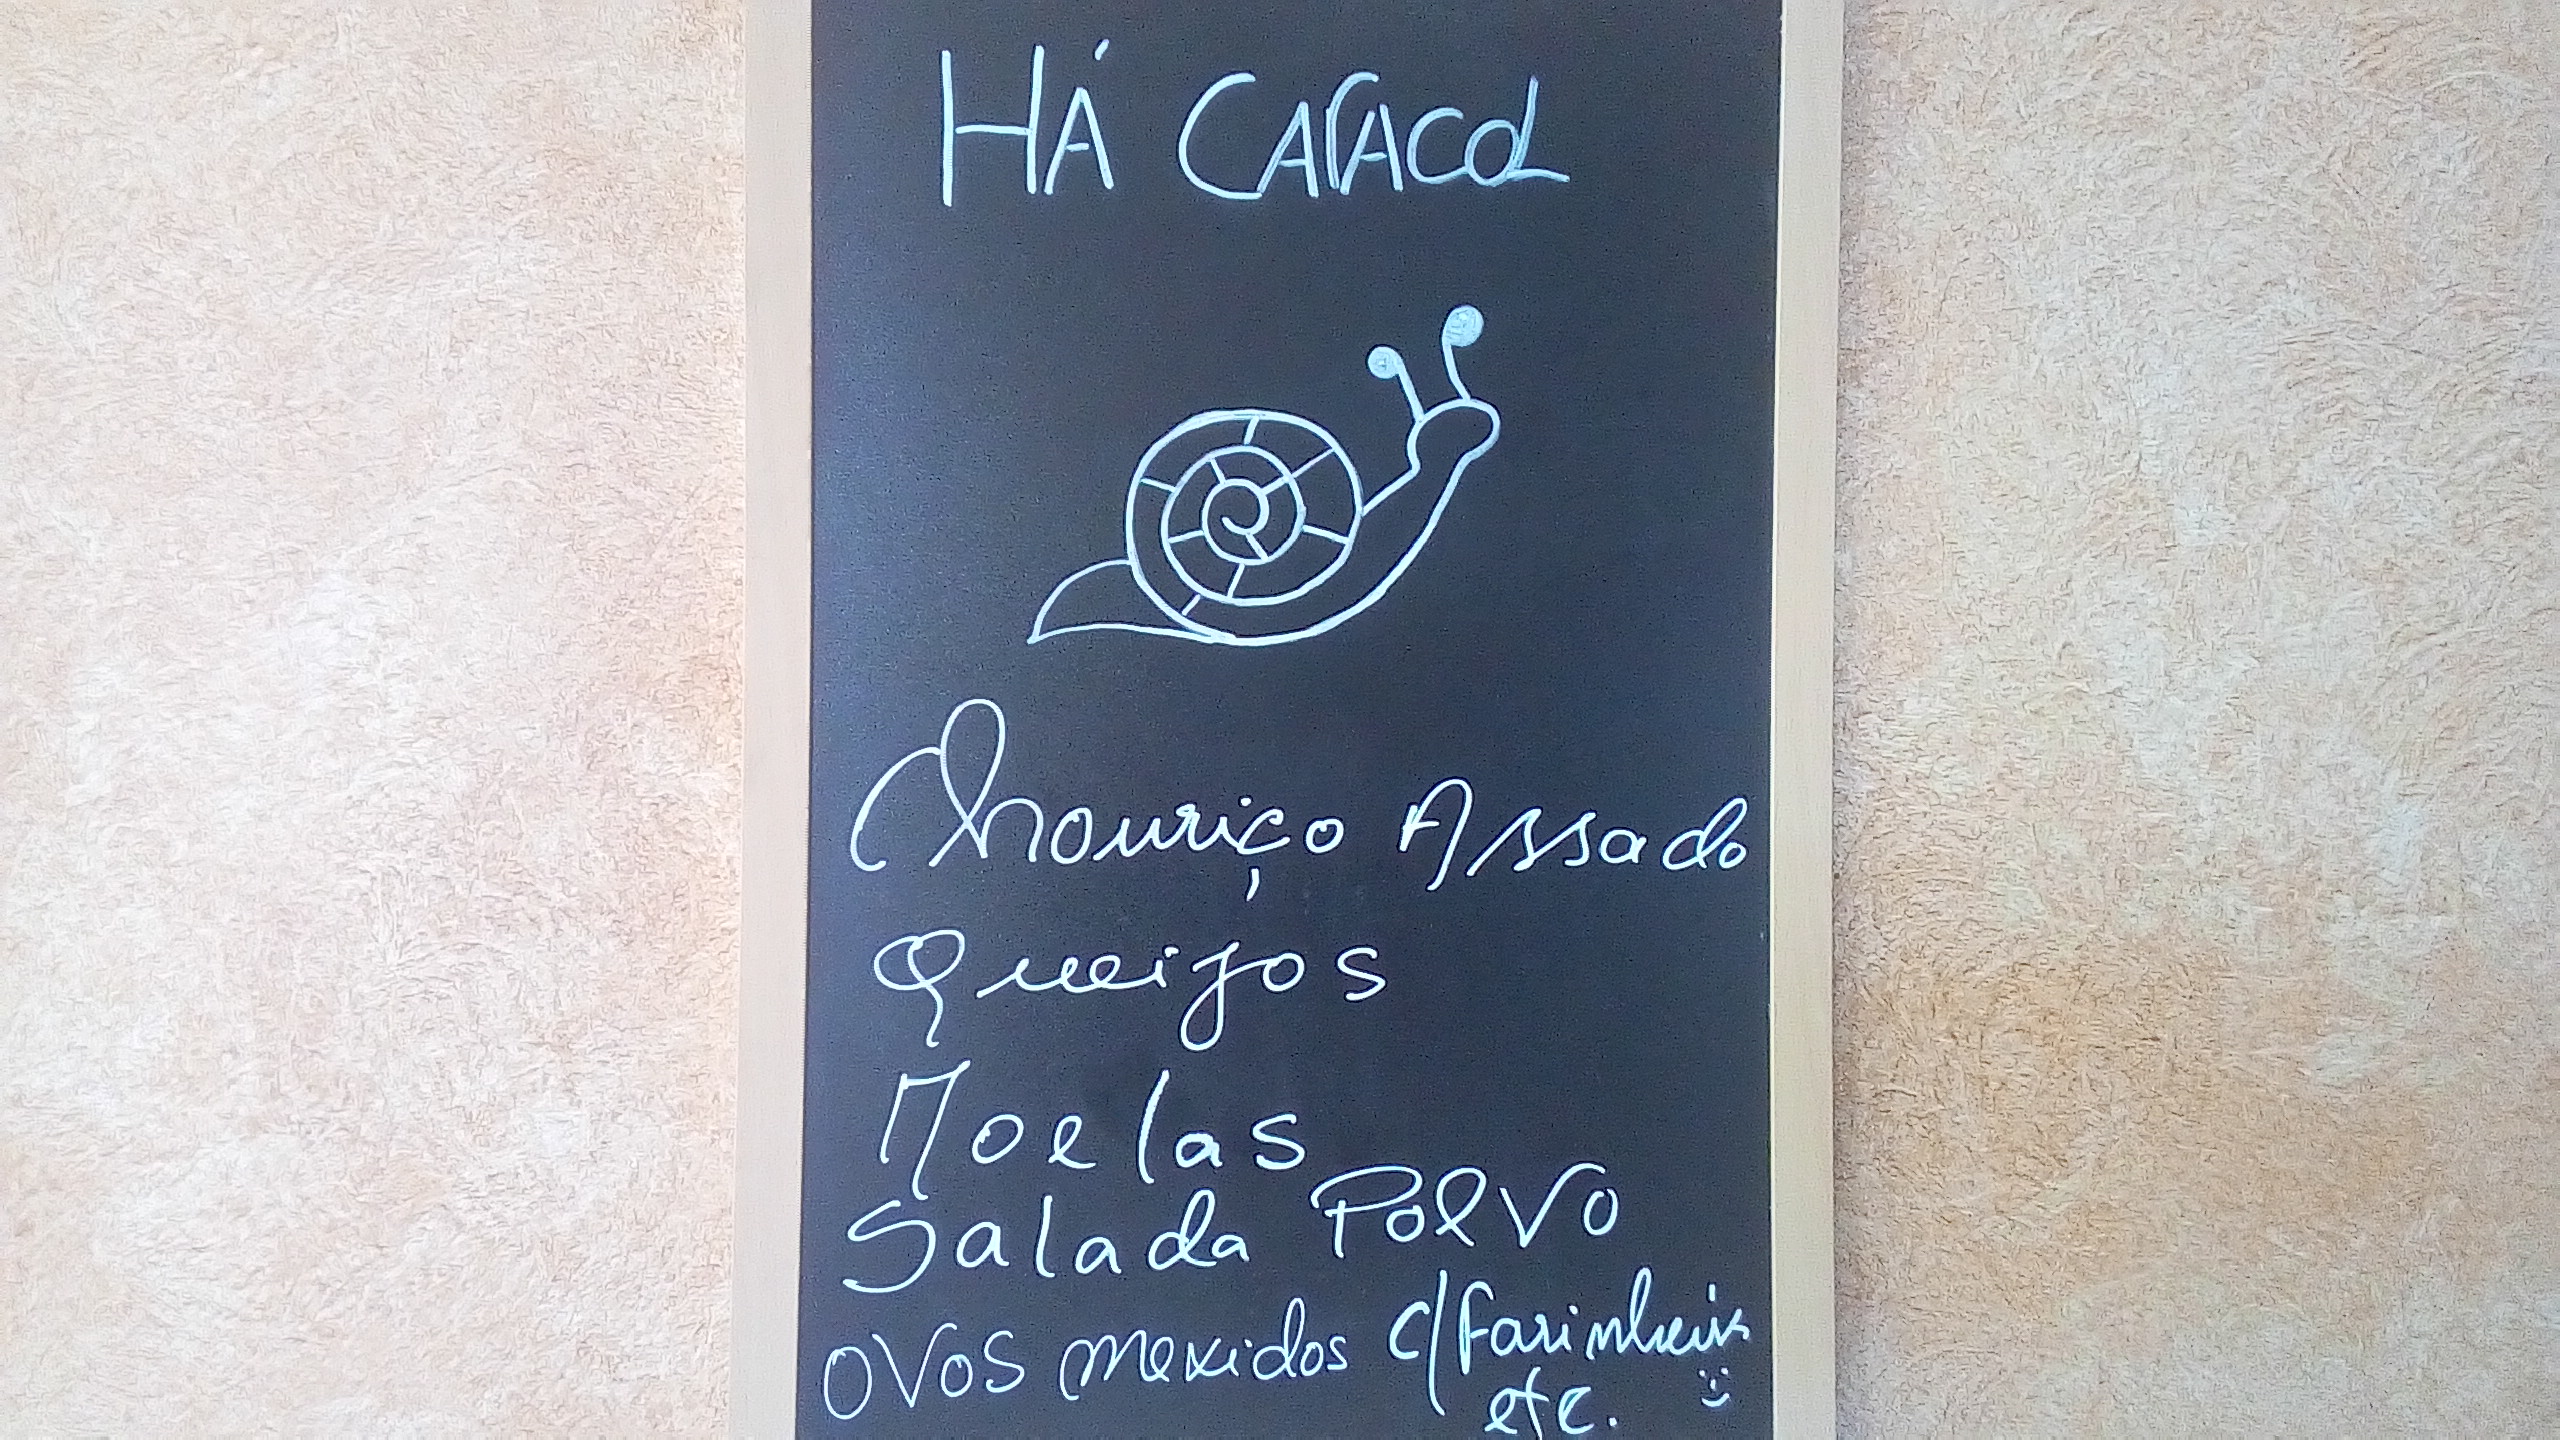 HÁ CArACOL
Chouriço Assado
Queijos
Moelas
Salada Polvo
OVOS mexidos c/ Farinheira
etc.